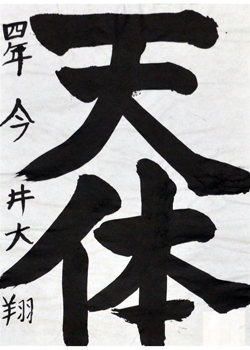 天体
四年 今井大翔